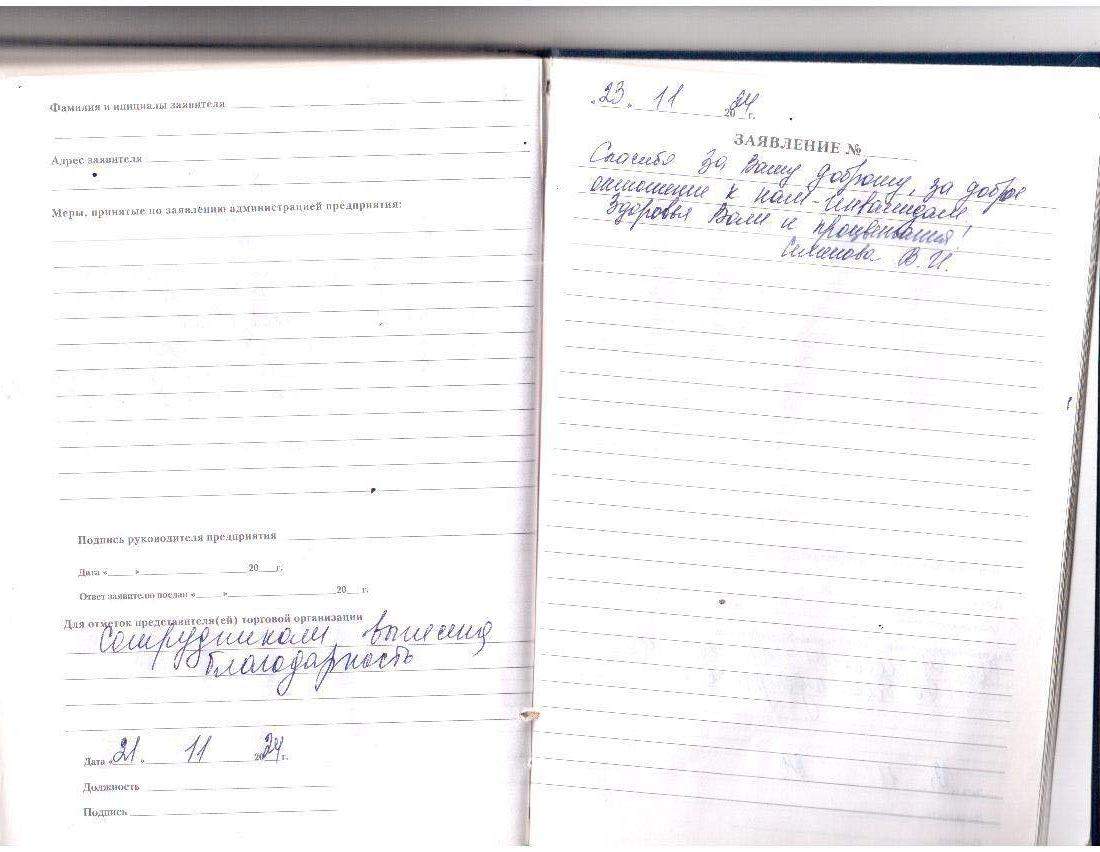 Фамилия и инициалы заявителя
Адрес заявителя
Меры, принятые по заявлению администрацией предприятия:
Подпись руководителя предприятия
Дата « » 20 г.
Ответ заявителю послан « » 20 г.
Для отметок представителя(ей) торговой организации
Сотрудникам вынесена
благодарность
Дата «21» 11 2024 г.
Должность
Подпись
«23» 11 2024 г.
ЗАЯВЛЕНИЕ №
Спасибо за Вашу доброту, за доброе
отношение к нам-инвалидам
Здоровья Вам и процветания!
Симанова В.И.